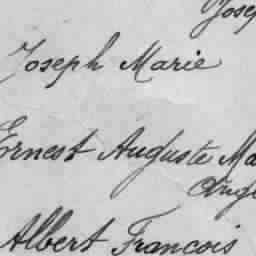 Joseph Marie
Ernest Auguste Ma
Albert Francois